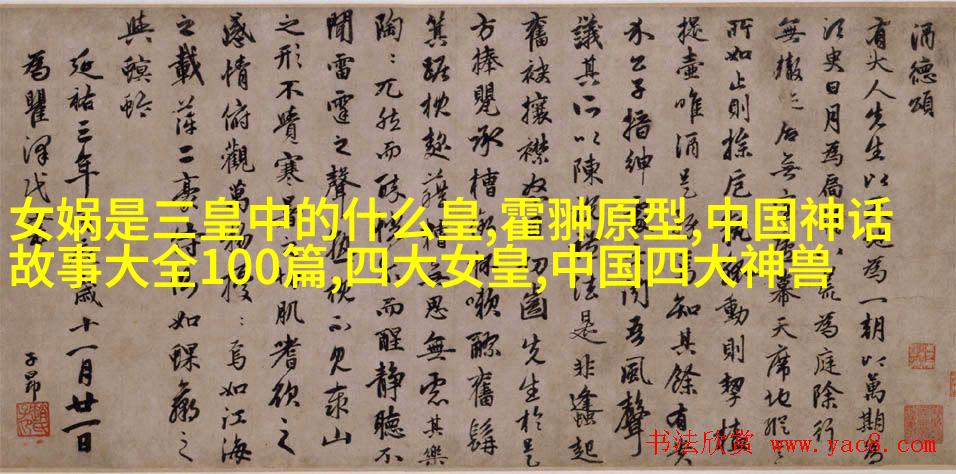 酒德頌
有大人先生以為一朝以萬期為
須臾日月為扃荒為庭除行
無轍迹居無幕天席地縱
所如止則操卮執動則挈榼
提壺唯酒是務焉知其餘有貴
介公子搢紳處士聞吾風聲
議其所以陳說禮法是非蠭起
奮袂攘襟怒目切齒先生於是
方捧甖承槽銜杯漱醪奮髯
箕踞枕麴藉糟無思無慮其樂
陶〻兀然而醉而醒靜聽不
聞雷霆之聲熟視不見泰山
之形不覺寒暑之切肌嗜欲之
感情俯觀萬物擾〻焉如江海
之載萍二豪侍側如蜾蠃之
與螟蛉
延祐三年歲十一月廿一日
為瞿澤
子昂
女娲是三皇中的什么皇,霍翀原型,中国神话
故事大全100篇,四大女皇,中国四大神兽
书法欣赏 www.yac8.com